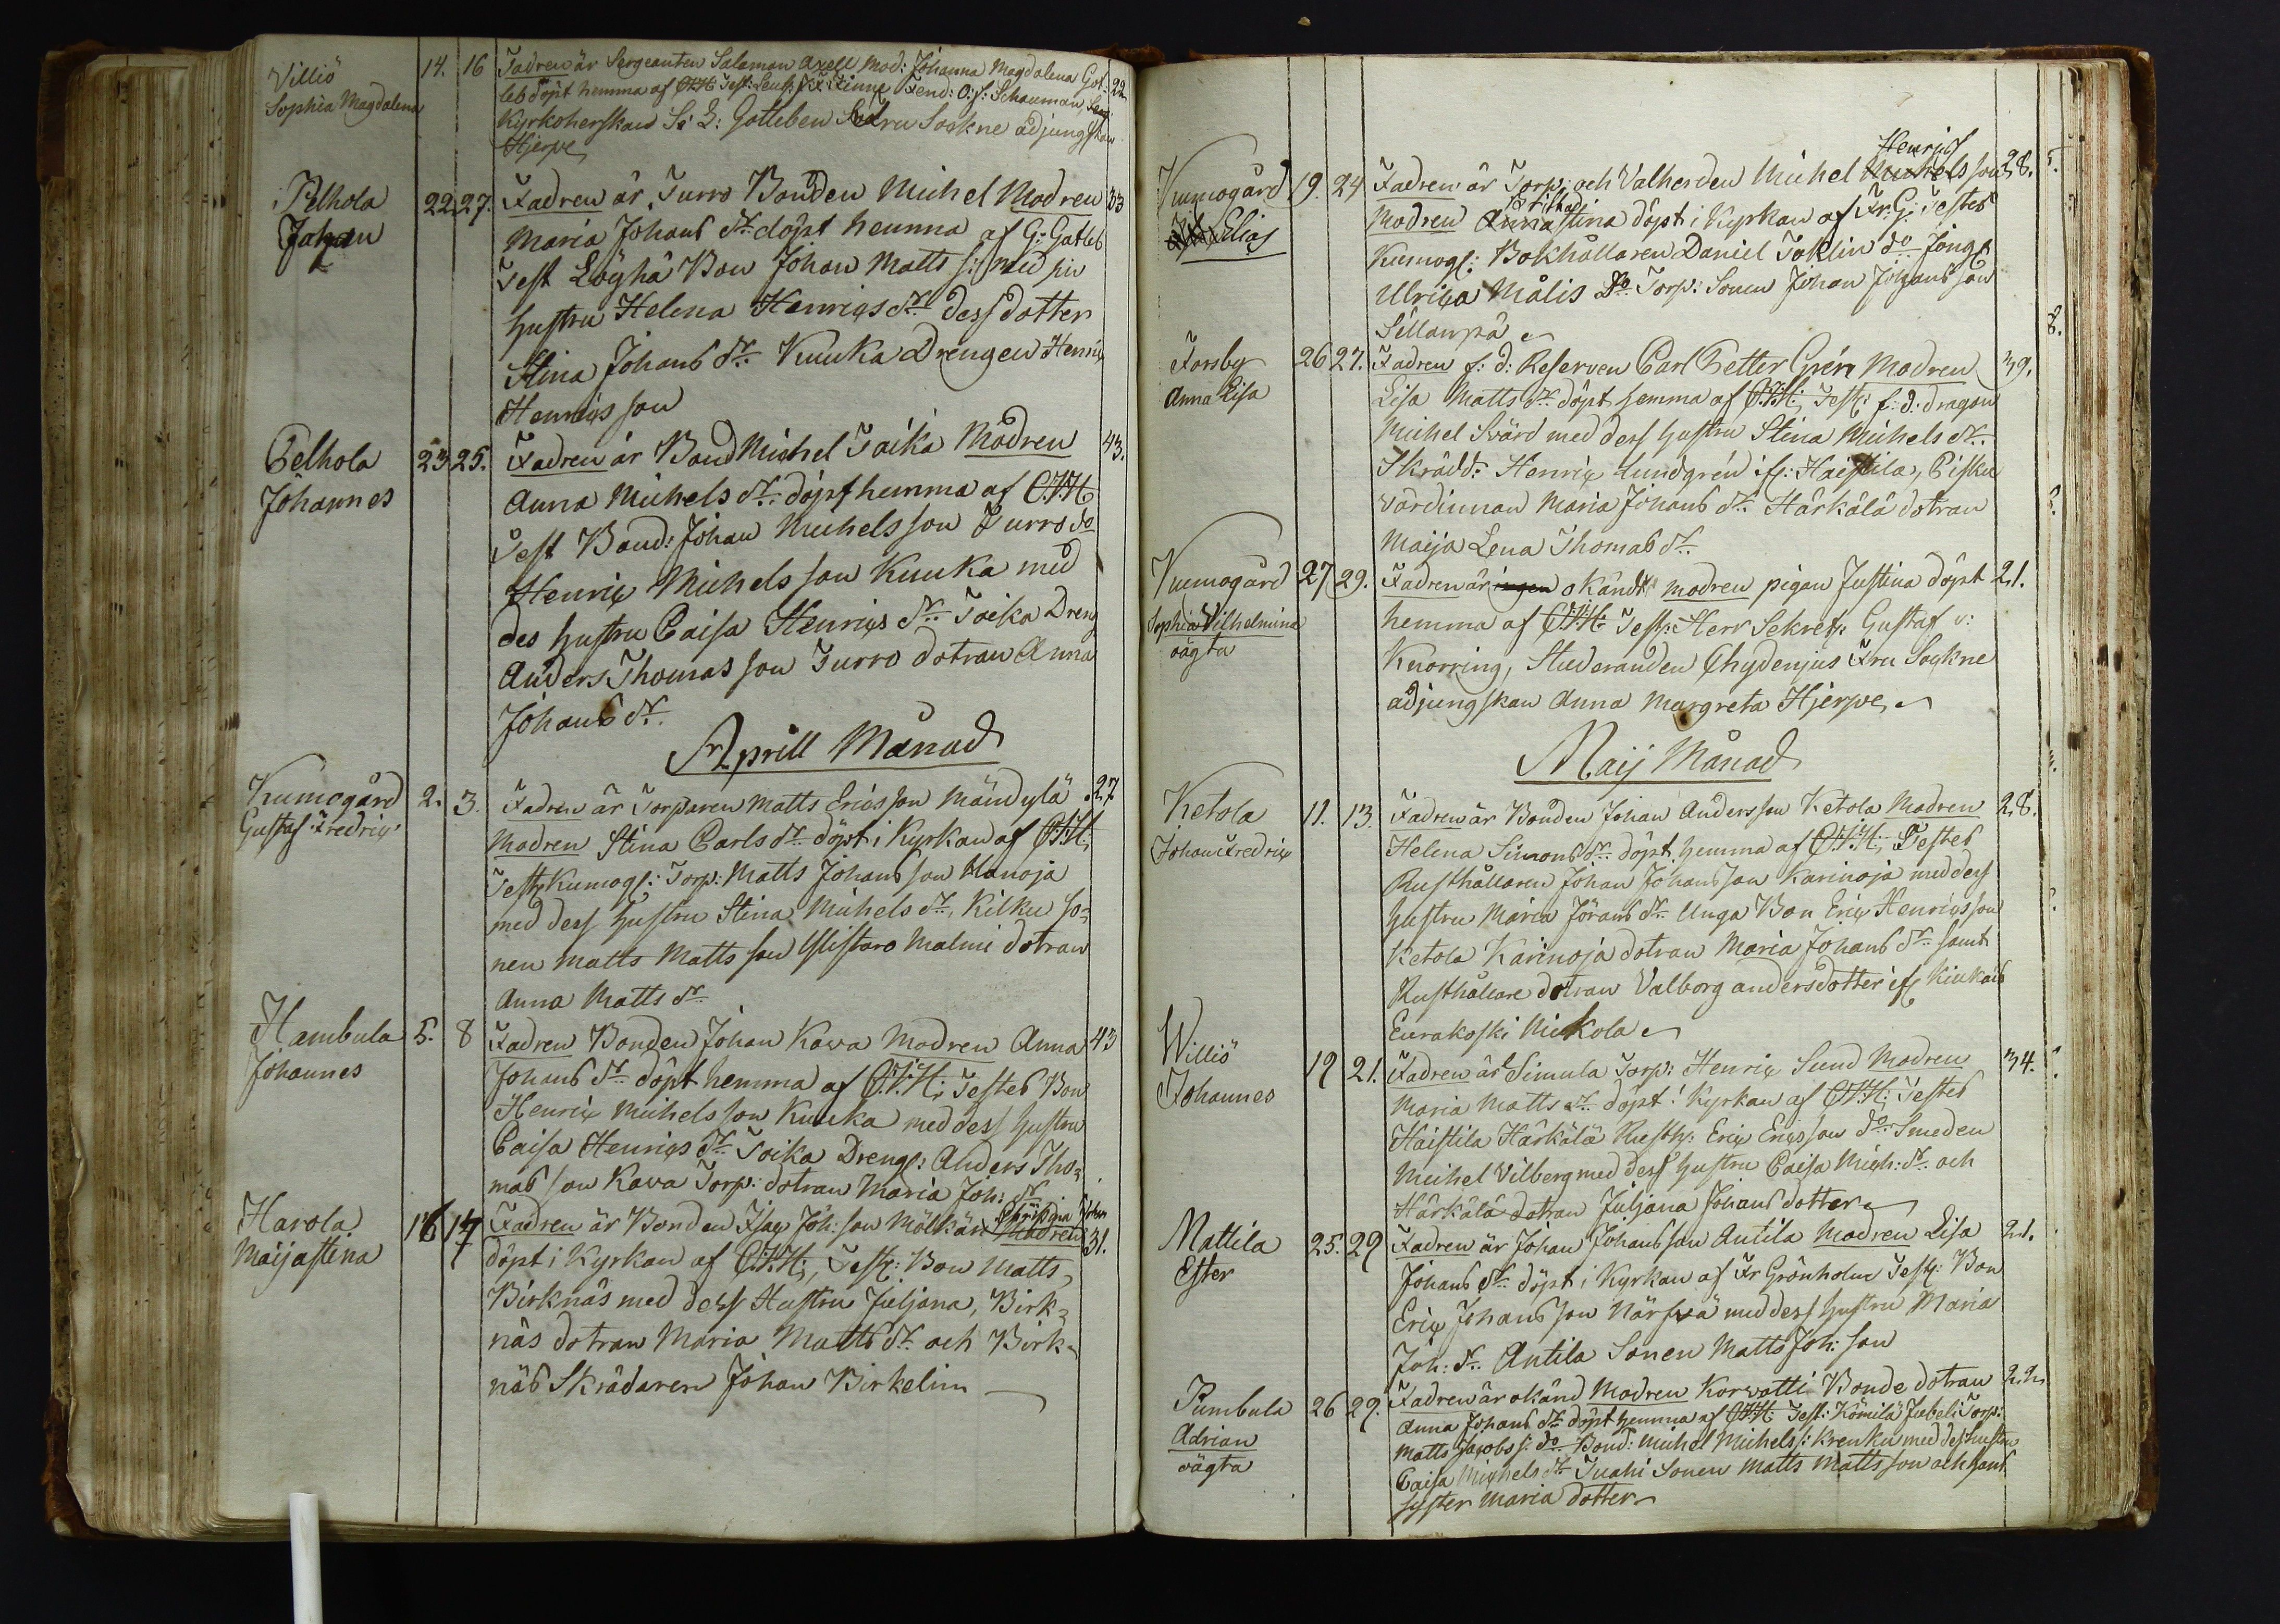 Villiö
Sophia Magdalena
14. 16 Fadren är Sergeanten Salamon Axell Mod: Johanna Magdalena Got: 22
leb döpt hemma af Fend: O: J: Schauman,
Kyrkoherskan S: L: Gotleben Sockne adjungskan
Hjerpe
Pelhola
Johan
22 27. Fadren är Turro Bonden Michel Modren 33
Maria Johans dr. döpt hemma af G: Gotleb
Test Löyhä Bon Johan Matts s: med sin
hustru Helena Henrics dr. dess dotter
Stina Johans dr. Kuuka Drengen Henric
Henrics son
Pelhola
Johannes
23 25. Fadren är Bond Michel Toika Modren 43.
Anna Michels dr. döpt hemma af
Test Bond: Johan Michels son Turro do
Henric Michels son Kuuka med
des hustru Caisa Henrics dr. Toika Dreng
Anders Thomas son Turro dotran Anna
Johans dr.
Aprill Månad
Kumogård
Gustaf Fredric
2. 3. Fadren är Torparen Matts Erics son Mändylä 27
Modren Stina Carls dr. döpt i Kyrkan af
Test: Kumog: Torp: Matts Johans son Hanoja
med dess hustru Stina Michels dr. Kilku so=
nen Matts Matts son Ylistaro Malmi dotran
Anna Matts dr.
Hambula
Johannes
5. 8 Fadren Bonden Johan Kawa Modren Anna 43
Johans dr. döpt hemma af Testes Bon
Henric Michels son Kuuka med dess hustru
Caisa Henrics dr. Toika Dreng: Anders Tho=
mas son Kawa Torp: dotran Maria Joh: dr
Harola
Maijastina
16 17 Fadren är Bonden Joh: son Mölkäri Modren 31.
döpt i Kyrkan af Test: Bon Matts
Birknäs med dess Hustru Juljana, Birk=
näs dotran Maria Matts dr. och Birk=
näs Skrädaren Johan Birkelin
Kumogård
Elias
19. 24 Fadren är Torp: och Valherden Michel Michels son 28.
Henrics
Modren Anna Stina döpt i Kyrkan af Fr. G: Testes
Kumog: Bokhållaren Daniel Toklin do Jongf
Ulrica Målis Do. Torp: Sonen Johan Johans son
Sillanpä
Forsby
Anna Lisa
26 27. Fadren f: d: Reserven Carl Petter Grén Modren 39.
Lisa Matts dr. döpt hemma af Test: f: d: dragon
Michel Svärd med dess hustru Stina Michels dr.
Skrädd: Henric Lundgrén if: Haistila, Pisku
värdinnan Maria Johans dr. Härkälä dotran
Maija Lena Thomas dr.
Kumogård
Sophia Vilhelmina
oägta
27 29. Fadren är ingen okändt modren pigan Justina döpt 21.
hemma af Test: Herr Sekret: Gustaf v:
Knorring, Studeranden Chydenjus Fru Sockne
adjungskan Anna Margreta Hjerpe
Maij Månad
Ketola
Johan Fredric
11. 13. Fadren är Bonden Johan Anders son Ketola Modren 28.
Helena Simons dr. döpt hemma af Testes
Rusthållaren Johan Johans son Karinoja med dess
hustru Maria Jörans dr. Unga Bon Eric Henrics son
Ketola Karinoja dotran Maria Johans dr. samt
Rusthållare dotran Valborg andersdotter if Kiukais
Eurakoski Mickola
Williö
Johannes
19 21. Fadren är Simula Torp: Henric Sund Modren 34.
Maria Matts dr. döpt i Kyrkan af Testes
Haistila Härkälä Rusth: Eric Erics son do. Smeden
Michel Vilberg med dess hustru Caisa Mich: dr. och
Härkälä dotran Juljana Johans dotter
Mattila
Ester
25. 29 Fadren är Johan Johans son Antila Modren Lisa 21.
Johans dr. döpt i Kyrkan af Fr Grönholm Test: Bon
Eric Johans son Närfwä med dess hustru Maria
Joh: dr. Antila Sonen Matts Joh: son
Pumbula
Adrian
oägta
26 29. Fadren är okänd Modren Korvatti Bonde dotran 22
Anna Johans dr. döpt hemma af Test: Kömilä Torp:
Matts Jacobs s: do Bond: Michel Michels s: Krenku med des hustru
Caisa Michels dr. Tuahi Sonen Matts Matts son och hans
syster Maria dotter